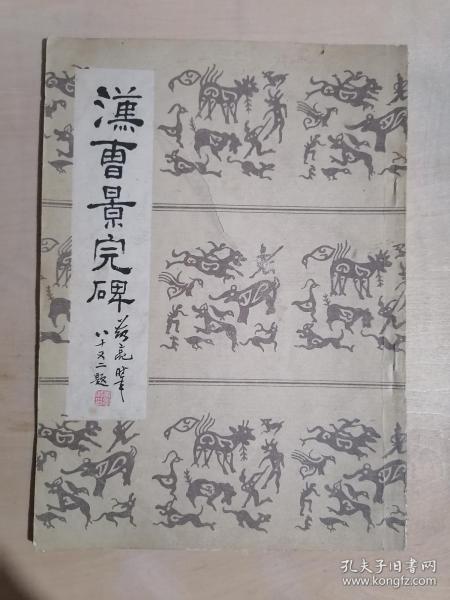 漢曹景完碑
八十又二題
孔夫子旧书网
www.kongfz.com